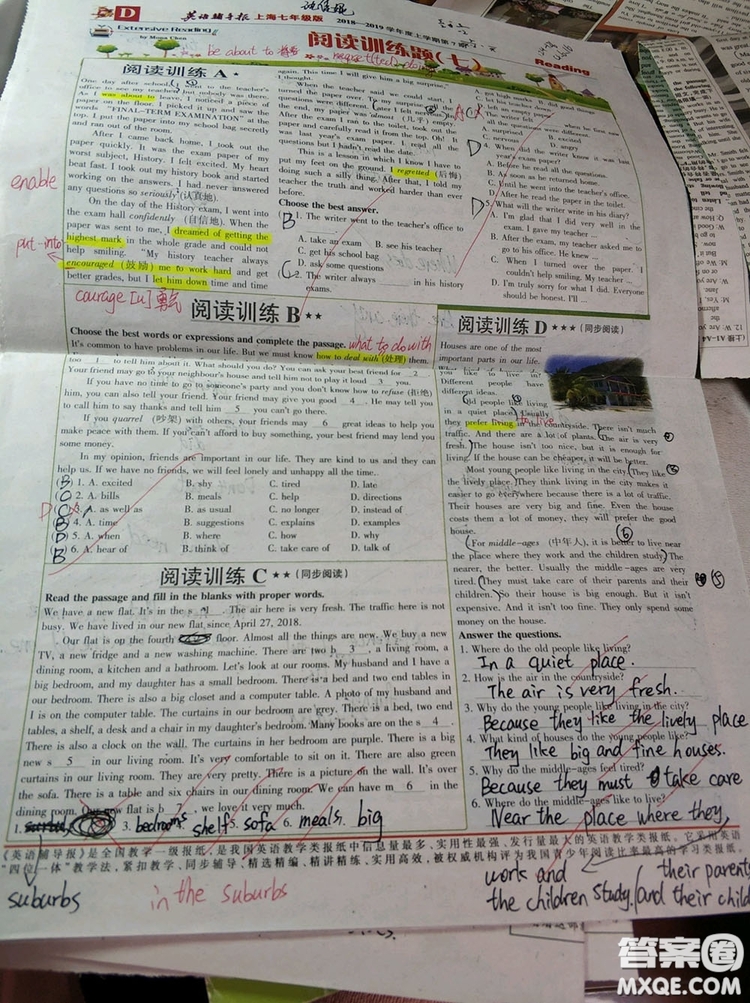 D
英语辅导报 上海七年级版
2018—2019学年度上学期第7
Extensive Reading
by Mona Chen
阅读训练题(七)
Reading
be about to
阅读训练 A ★
One day after school, I to the teacher's
office to see my teacher, but nobody was there.
As I was about to leave, I noticed a piece of
paper on the floor. I picked it up and saw the
words "FINAL-TERM EXAMINATION" at the
top. I put the paper into my school bag secretly
and ran out of the room.
After I came back home, I took out the
paper quickly. It was the exam paper of my
worst subject, History. I felt excited. My heart
beat fast. I took out my history book and started
working on the answers. I had never answered
any questions so seriously (认真地).
On the day of the History exam, I went into
the exam hall confidently (自信地). When the
paper was sent to me, I dreamed of getting the
highest mark in the whole grade and could not
help smiling. "My history teacher always
encouraged (鼓励) me to work hard and get
better grades, but I let him down time and time
enable
put-into
courage [n] 勇气
again. This time I will give him a big surprise,"
I thought.
When the teacher said we could start, I
turned the paper over. To my surprise, the
questions were different. I felt nervous. In the
end, my paper was almost (几乎) empty.
After the exam, I ran to the toilet, took out the
paper and carefully read it from the top. Oh! It
was last year's exam paper. I read all the
questions but I hadn't read the date.
This is a lesson in which I know I have to
put my feet on the ground. I regretted (后悔)
doing such a silly thing. After that, I told my
teacher the truth and worked harder than ever
before.
Choose the best answer.
B
1. The writer went to the teacher's office to
.
A. take an exam B. see his teacher
C. get his school bag
D. ask some questions
C
2. The writer always in his history
exams.
A. got high marks B. did good
C. let his teacher
3. The writer felt when he saw
all the questions were different.
A. surprised B. excited
C. nervous D. angry
D
4. When did the writer know it was last
year's exam paper?
A. Before he read all the questions.
B. As soon as he returned home.
C. Until he went into the teacher's office.
D. After he read the paper in the toilet.
D
5. What will the writer write in his diary?
A. I'm glad that I did very well in the
exam. I gave my teacher ...
B. After the exam, my teacher asked me
to go to his office. He knew ...
C. When I turned over the paper, I
couldn't help smiling. My teacher ...
D. I'm truly sorry for what I did. Everyone
should be honest. I'll ...
阅读训练 B ★★
Choose the best words or expressions and complete the passage.
what to do with
It's common to have problems in our life. But we must know how to deal with (处理) them.
too 1 to tell him about it. What should you do? You can ask your best friend for 2 .
Your friend may go to your neighbour's house and tell him not to play it loud 3 you.
If you have no time to go to someone's party and you don't know how to refuse (拒绝)
him, you can also tell your friend. Your friend may give you good 4 . He may tell you
to call him to say thanks and tell him 5 you can't go there.
If you quarrel (吵架) with others, your friends may 6 great ideas to help you
make peace with them. If you can't afford to buy something, your best friend may lend you
some money.
In my opinion, friends are important in our life. They are kind to us and they can
help us. If we have no friends, we will feel lonely and unhappy all the time.
B 1. A. excited B. shy C. tired D. late
C 2. A. bills B. meals C. help D. directions
D 3. A. as well as B. as usual C. no longer D. instead of
B 4. A. time B. suggestions C. explains D. examples
D 5. A. when B. where C. how D. why
B 6. A. hear of B. think of C. take care of D. talk of
阅读训练 C ★★ (同步阅读)
Read the passage and fill in the blanks with proper words.
We have a new flat. It's in the s 1 . The air here is very fresh. The traffic here is not
busy. We have lived in our new flat since April 27, 2018.
Our flat is on the fourth floor. Almost all the things are new. We buy a new
TV, a new fridge and a new washing machine. There are two b 3 , a living room, a
dining room, a kitchen and a bathroom. Let's look at our rooms. My husband and I have a
big bedroom, and my daughter has a small bedroom. There is a bed and two end tables in
our bedroom. There is also a big closet and a computer table. A photo of my husband and
I is on the computer table. The curtains in our bedroom are grey. There is a bed, two end
tables, a shelf, a desk and a chair in my daughter's bedroom. Many books are on the s 4 .
There is also a clock on the wall. The curtains in her bedroom are purple. There is a big
new s 5 in our living room. It's very comfortable to sit on it. There are also green
curtains in our living room. They are very pretty. There is a picture on the wall. It's over
the sofa. There is a table and six chairs in our dining room. We can have m 6 in the
dining room. Our new flat is b 7 , we love it very much.
1. 3. bedrooms shelf 5. sofa 6. meals. big
suburbs
in the suburbs
阅读训练 D ★★★ (同步阅读)
Houses are one of the most
important parts in our life.
you like to live in?
Different people have
different ideas.
Old people like living
in a quiet place. Usually
they prefer living in the countryside. There isn't much
traffic. And there are a lot of plants. The air is very
fresh. The house isn't too nice, but it is enough for
living. If the house can be cheaper, it will be better.
Most young people like living in the city. They like
the lively place. They think living in the city makes it
easier to go everywhere because there is a lot of traffic.
Their houses are very big and fine. Even the house
costs them a lot of money, they will prefer the good
house.
For middle-ages (中年人), it is better to live near
the place where they work and the children study. The
nearer, the better. Usually the middle-ages are very
tired. They must take care of their parents and their
children. So their house is big enough. But it isn't
expensive. And it isn't too fine. They only spend some
money on the house.
Answer the questions.
1. Where do the old people like living?
In a quiet place.
2. How is the air in the countryside?
The air is very fresh.
3. Why do the young people like living in the city?
Because they like the lively place
4. What kind of houses do the young people like?
They like big and fine houses.
5. Why do the middle-ages feel tired?
Because they must take care
6. Where do the middle-ages like to live?
Near the place where they
work and
the children study.
their parents
and their child
《英语辅导报》是全国教学一级报纸, 是我国英语教学类报纸中信息量最多、实用性最强、发行量最大的英语教学类报纸。它采用英语
"四位一体"教学法, 紧扣教学、同步辅导、精选精编、精讲精练、实用高效, 被权威机构评为我国青少年阅读比率最高的学习类报纸。
答案圈
MXQE.COM